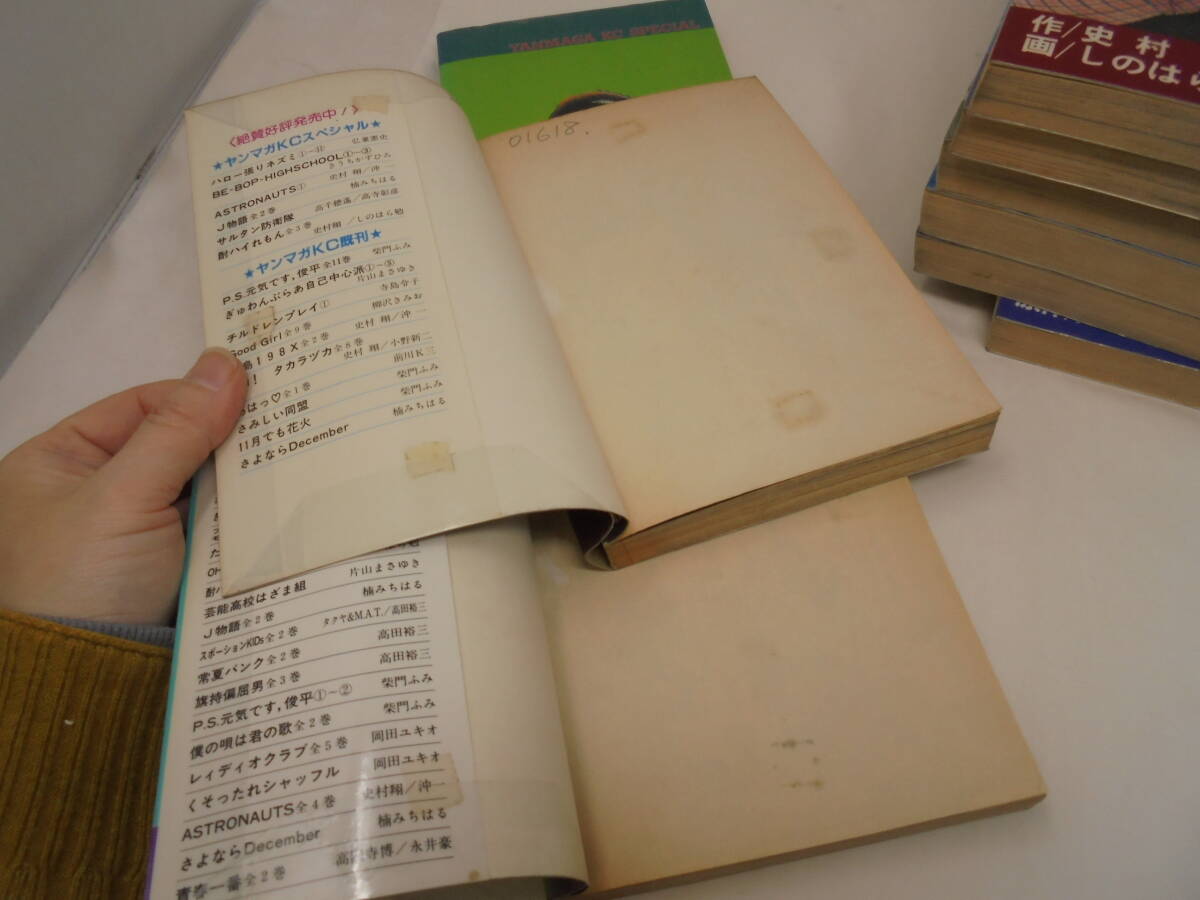 YANMAGA KC SPECIAL
作/史村
画/しのはら
01618.
〈絶賛好評発売中！〉
★ヤンマガKCスペシャル★
ハロー張りネズミ①〜⑪ 弘兼憲史
BE-BOP-HIGHSCHOOL①〜③ きうちかずひろ
ASTRONAUTS① 史村 翔／沖 一
J物語全2巻 楠みちはる
サルタン防衛隊 高千穂遙／高寺彰彦
酎ハイれもん全3巻 史村翔／しのはら勉
★ヤンマガKC既刊★
P.S.元気です,俊平全11巻 柴門ふみ
ぎゅわんぶらあ自己中心派①〜⑤ 片山まさゆき
チルドレンプレイ① 寺島令子
Good Girl全9巻 柳沢きみお
島198X全2巻 史村 翔／沖 一
！ タカラヅカ全8巻 史村 翔／小野新二
はっ♡全1巻 前川K三
さみしい同盟 柴門ふみ
11月でも花火 柴門ふみ
さよならDecember 楠みちはる
芸能高校はざま組 片山まさゆき
J物語全2巻 楠みちはる
スポーションKIDs全2巻 タクヤ&M.A.T.／高田裕三
常夏バンク全2巻 高田裕三
旗持偏屈男全3巻 高田裕三
P.S.元気です,俊平①〜② 柴門ふみ
僕の唄は君の歌全2巻 柴門ふみ
レィディオクラブ全5巻 岡田ユキオ
くそったれシャッフル 岡田ユキオ
ASTRONAUTS全4巻 史村翔／沖一
さよならDecember 楠みちはる
青春一番全2巻 高円寺博／永井豪